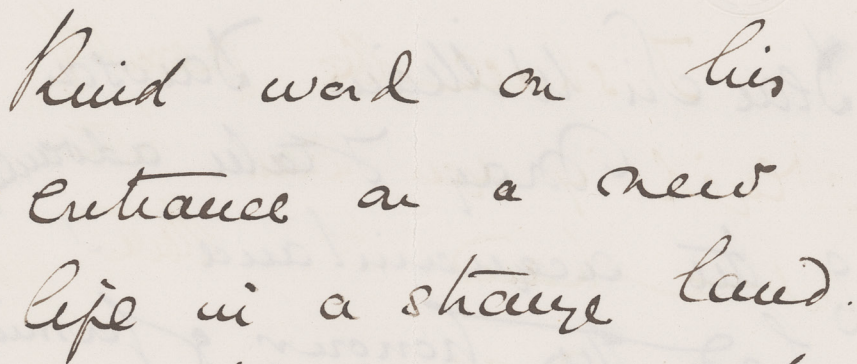 Kind word on his
entrance on a new
life in a strange land.